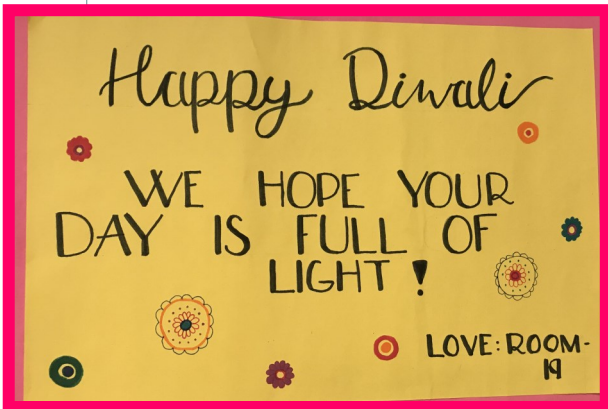 Happy Diwali
WE HOPE YOUR
DAY IS FULL OF
LIGHT!
LOVE: ROOM-
19